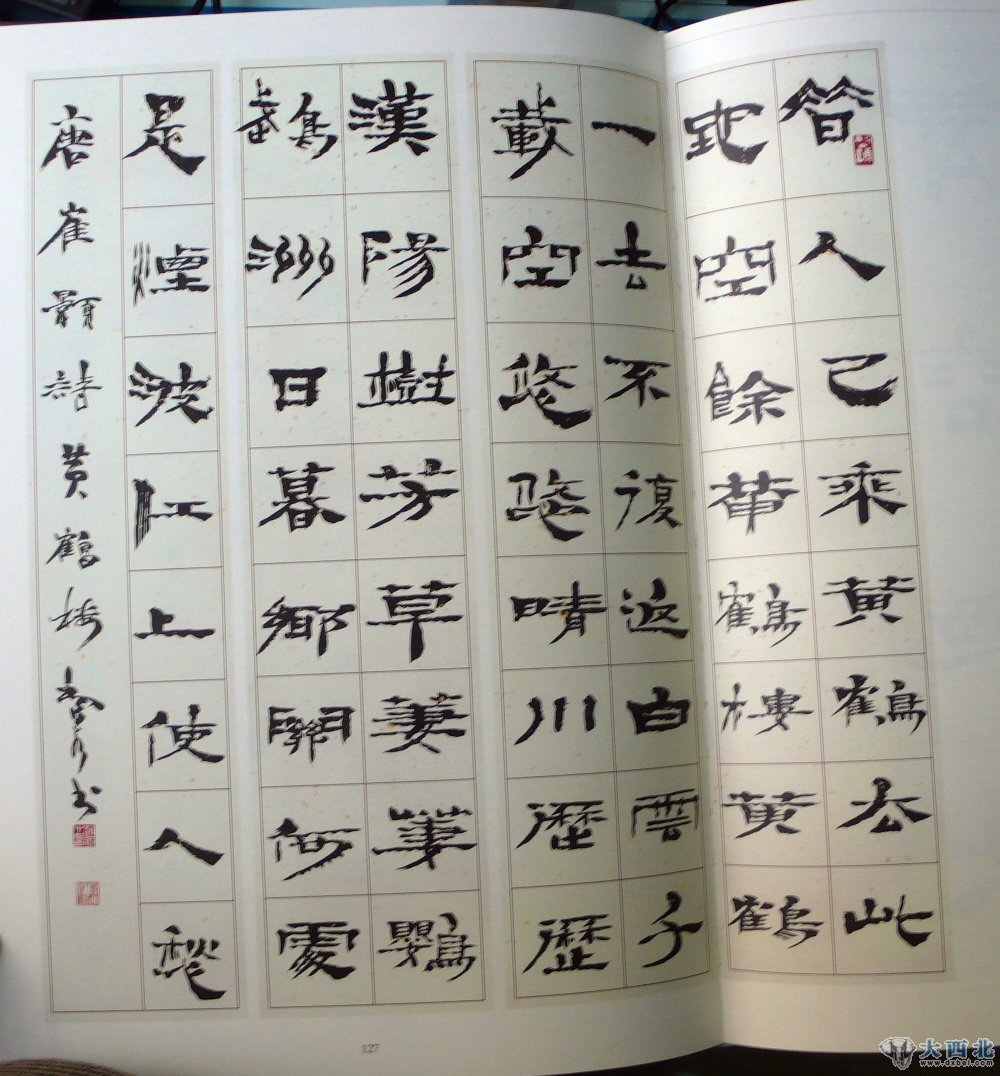 昔人已乘黄鶴去此
地空餘黄鶴樓黄鶴
一去不復返白雲千
載空悠悠晴川歷歷
漢陽樹芳草萋萋鸚
鵡洲日暮鄉關何處
是煙波江上使人愁
唐崔顥詩黄鶴樓 书
127
大西北
www.dxbei.com